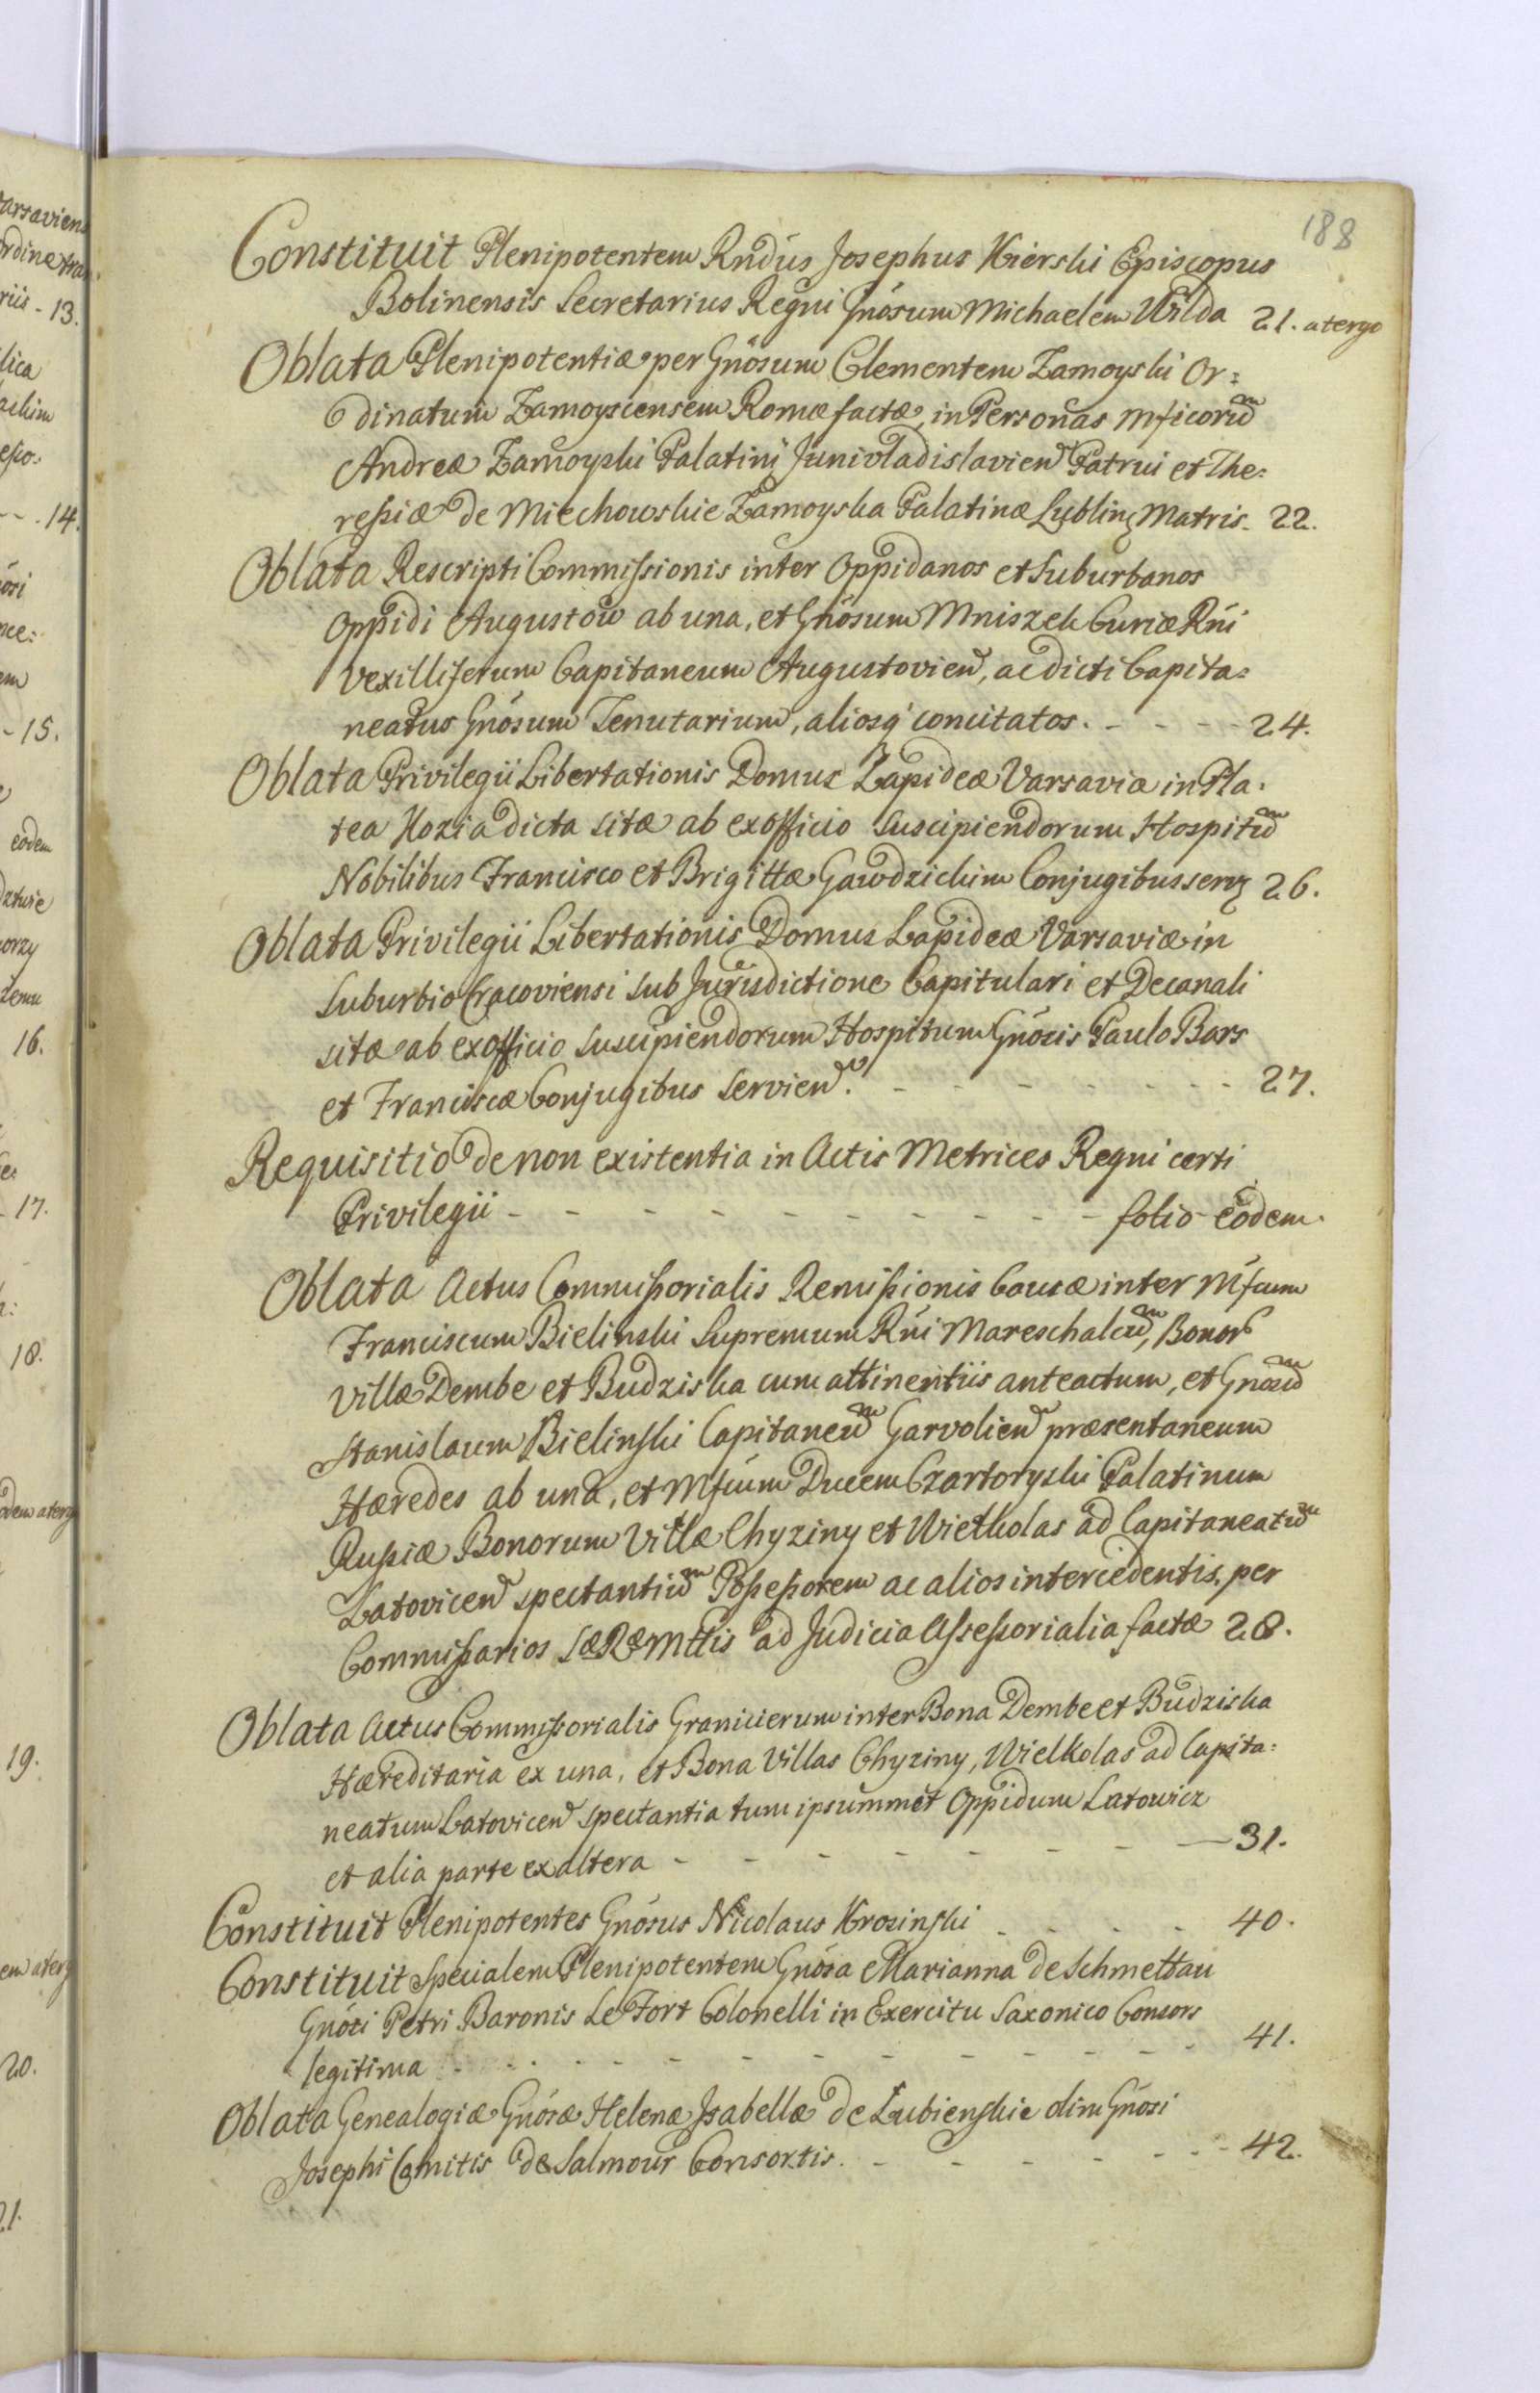 188
Constituit Plenipotentem Rndus Josephus Kierski Episcopus
Bolinensis Secretarius Regni Gnosum Michaelem Wilda 21. a tergo
Oblata Plenipotentiæ per Gnosum Clementem Zamoyski Or=
dinatum Zamoyscensem Romæ factæ, in Personas Mficorum
Andreæ Zamoyski Palatini Junivladislavien Patrui et The=
ressiæ de Miechowskie Zamoyska Palatinæ Lublin Matris - 22.
Oblata Rescripti Commissionis inter Oppidanos et Suburbanos
Oppidi Augustow ab una, et Gnosum Mniszek Curiæ Rni
Vexilliferum Capitaneum Augustovien, ac dicti Capita=
neatus Gnosum Tenutarium, aliosq concitatos. - - - - 24.
Oblata Privilegii Libertationis Domus Lapideæ Varsavia in Pla=
tea Kozia dicta sitæ ab exofficio suscipiendorum Hospitum
Nobilibus Francisco et Brigittæ Gawdzickim Conjugibus serv 26.
Oblata Privilegii Libertationis Domus Lapideæ Varsaviæ in
Suburbio Cracoviensi sub Jurisdictione Capitulari et Decanali
sitæ ab exofficio suscipiendorum Hospitum Gnosis Paulo Bars
et Franciscæ Conjugibus servien. - - - - - - - 27.
Requisitio de non existentia in Actis Metrices Regni certi
Privilegii - - - - - - - - - folio eodem.
Oblata Actus Commissorialis Remissionis Causæ inter Mfcum
Franciscum Bielinski Supremum Rni Mareschalcum, Bonor
Villæ Dembe et Budziska cum attinentiis anteactum, et Gnosum
Stanislaum Bielinski Capitaneum Garvolien præsentaneum
Hæredes ab una, et Mfcum Ducem Czartoryski Palatinum
Russiæ Bonorum Villæ Chyziny et Wielkolas ad Capitaneatum
Latovicen spectantium Possessorem ac alios intercedentis, per
Commissarios SæRæMttis ad Judicia Assessorialia factæ 28.
Oblata Actus Commissorialis Granicierum inter Bona Dembe et Budziska
Hæreditaria ex una, et Bona Villas Chyziny, Wielkolas ad Capita=
neatum Latovicen spectantia tum ipsummet Oppidum Latowicz
et alia parte ex altera - - - - - - - - 31.
Constituit Plenipotentes Gnosus Nicolaus Krosinski - - - - 40.
Constituit Specialem Plenipotentem Gnosa Marianna de Schmettau
Gnosi Petri Baronis Le Fort Colonelli in Exercitu Saxonico Consors
legitima - - - - - - - - - - - 41.
Oblata Genealogiæ Gnosæ Helenæ Isabellæ de Lubienskie olim Gnosi
Josephi Comitis de Salmour Consortis. - - - - - - 42.